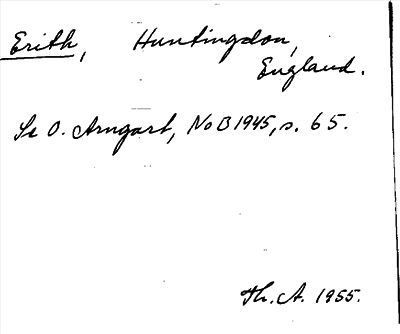 Erith, Huntingdon,
England.
Se O. Arngart, NoB 1945, s. 65.
Th. A. 1955.